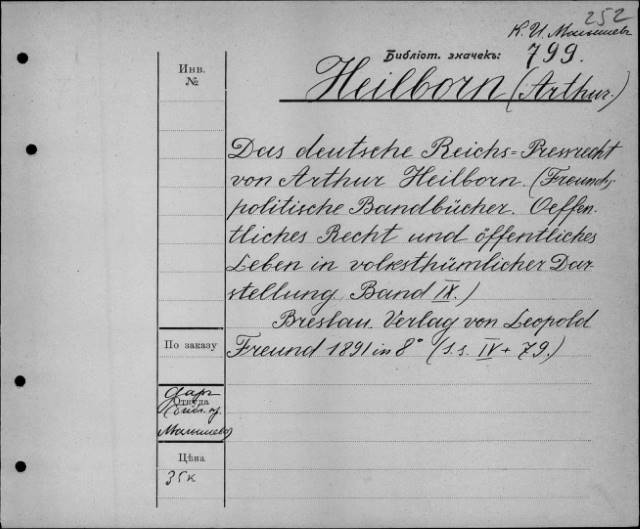 252
К. И. Малышевъ
Библiот. значекъ: 799.
Инв.
№
Heilborn (Arthur.)
Das deutsche Reichs=Pressrecht
von Arthur Heilborn. (Freunds
politische Handbücher. Oeffen-
tliches Recht und öffentliches
Leben in volksthümlicher Dar-
stellung, Band IX.)
Breslau. Verlag von Leopold
Freund 1891 in 8° (S.S. IV + 79.)
По заказу
Откуда
даръ
Малышева)
Цѣна
35 к